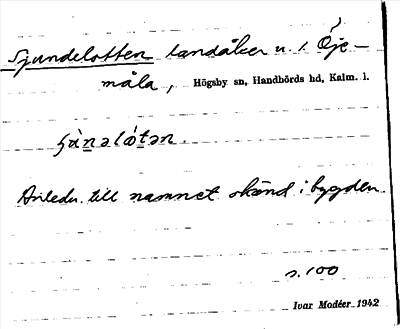 Sjundelotten landåker u. l. Öje-
måla, Högsby sn, Handbörds hd, Kalm. l.
ʃɯ̀nəlɷ́tən.
Anledn. till namnet okänd i bygden.
s. 100
Ivar Modéer 1942